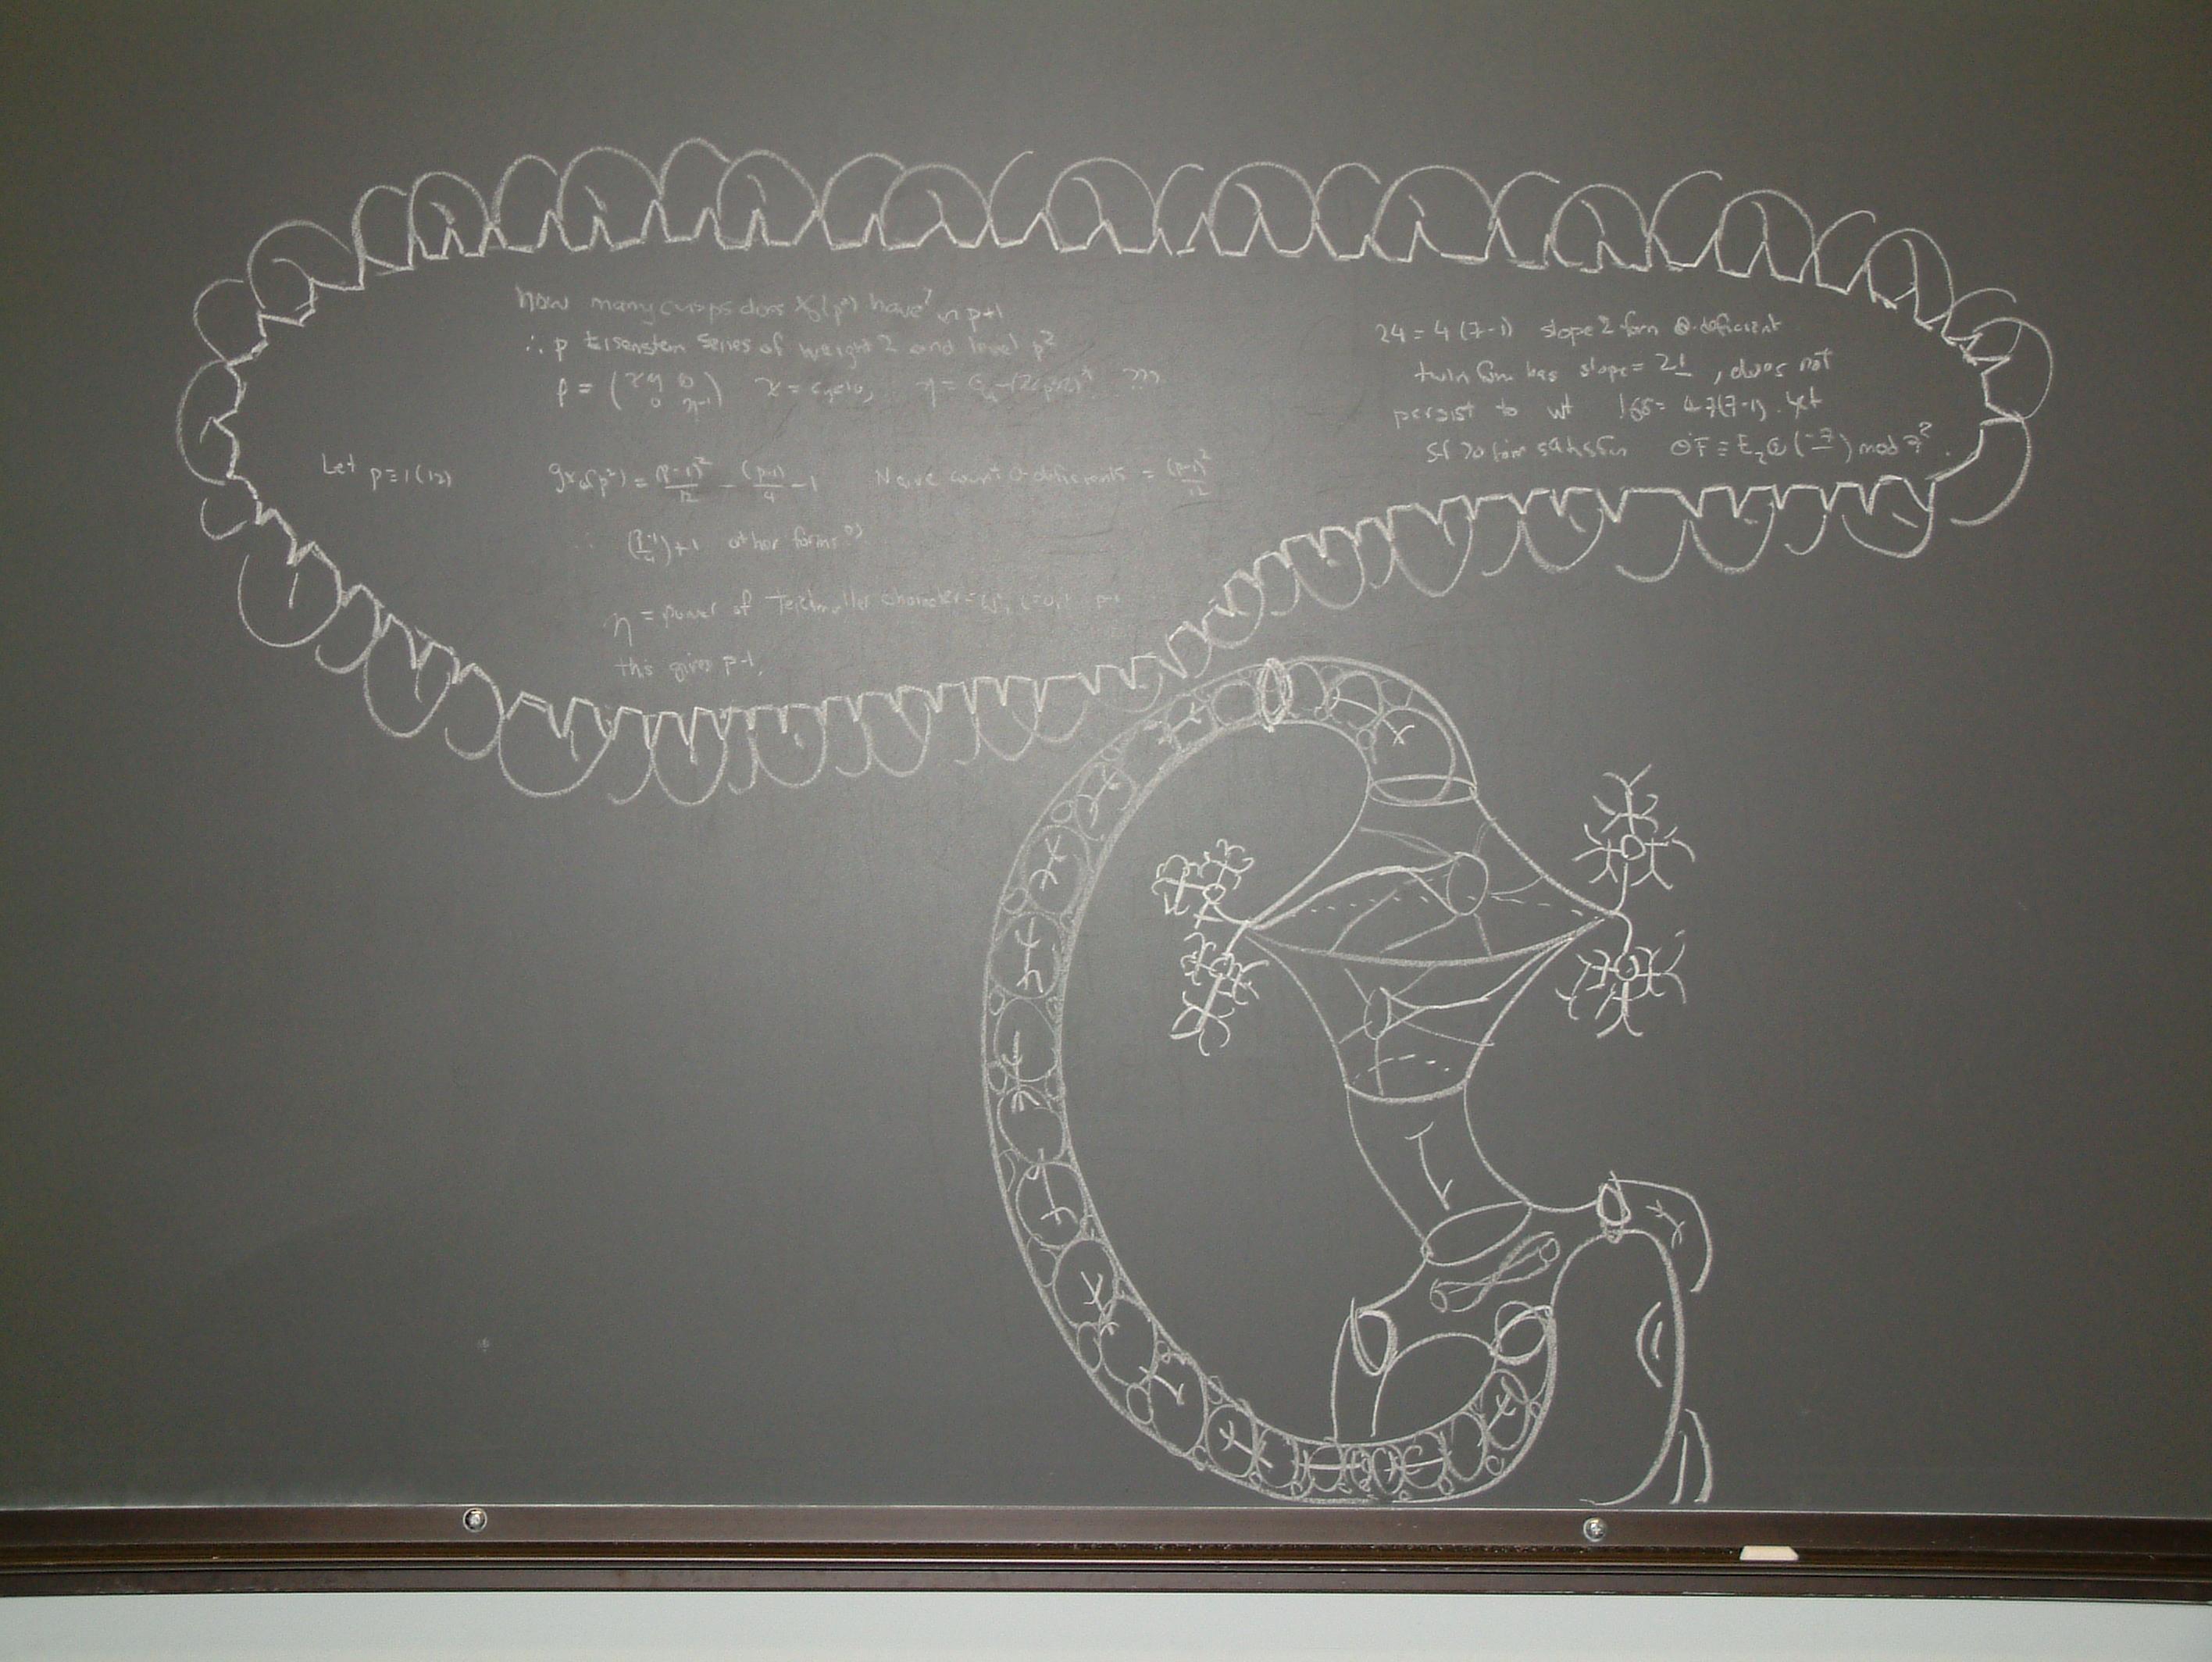 how many cusps does X₀(p²) have? p+1
∴ p Eisenstein series of weight 2 and level p²
ρ = (χη 0 / 0 η⁻¹) χ = cyclo, η = ???
Let p≡1(12) gX₀(p²) = (p-1)²/12 - (p-1)/4 - 1 Naive count θ-deficients = (p-1)²/12
∴ (p-1/4)+1 other forms
η = power of Teichmuller character = i=0,1
this gives p-1.
24 = 4(7-1) slope 2 form θ-deficient
twin form has slope = 21, does not
persist to wt 168 = 4·7(7-1). Yet
form satisfies θF ≡ E₂⊗(-7) mod 7².